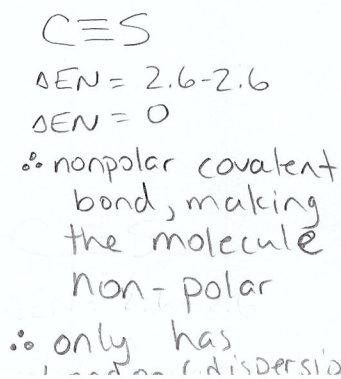 C≡S
ΔEN = 2.6-2.6
ΔEN = 0
∴ nonpolar covalent
bond, making
the molecule
non-polar
∴ only has